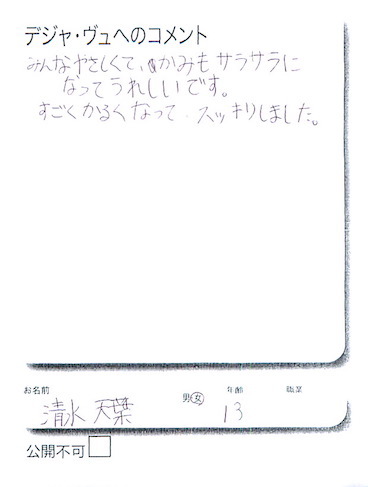 デジャ・ヴュへのコメント
みんなやさしくて、かみもサラサラに
なってうれしいです。
すごくかるくなって、スッキリしました。
お名前
男女
年齢
職業
清水 天葉
13
公開不可